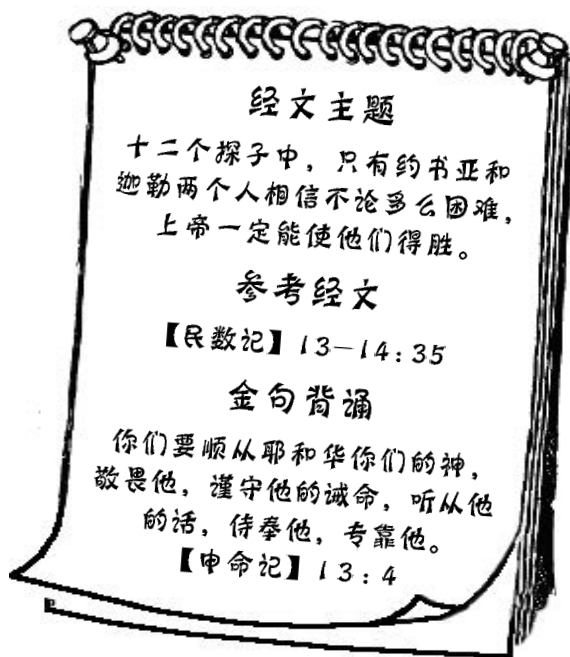 经文主题
十二个探子中，只有约书亚和
迦勒两个人相信不论多么困难，
上帝一定能使他们得胜。
参考经文
【民数记】13－14：35
金句背诵
你们要顺从耶和华你们的神，
敬畏他，谨守他的诫命，听从他
的话，侍奉他，专靠他。
【申命记】13：4